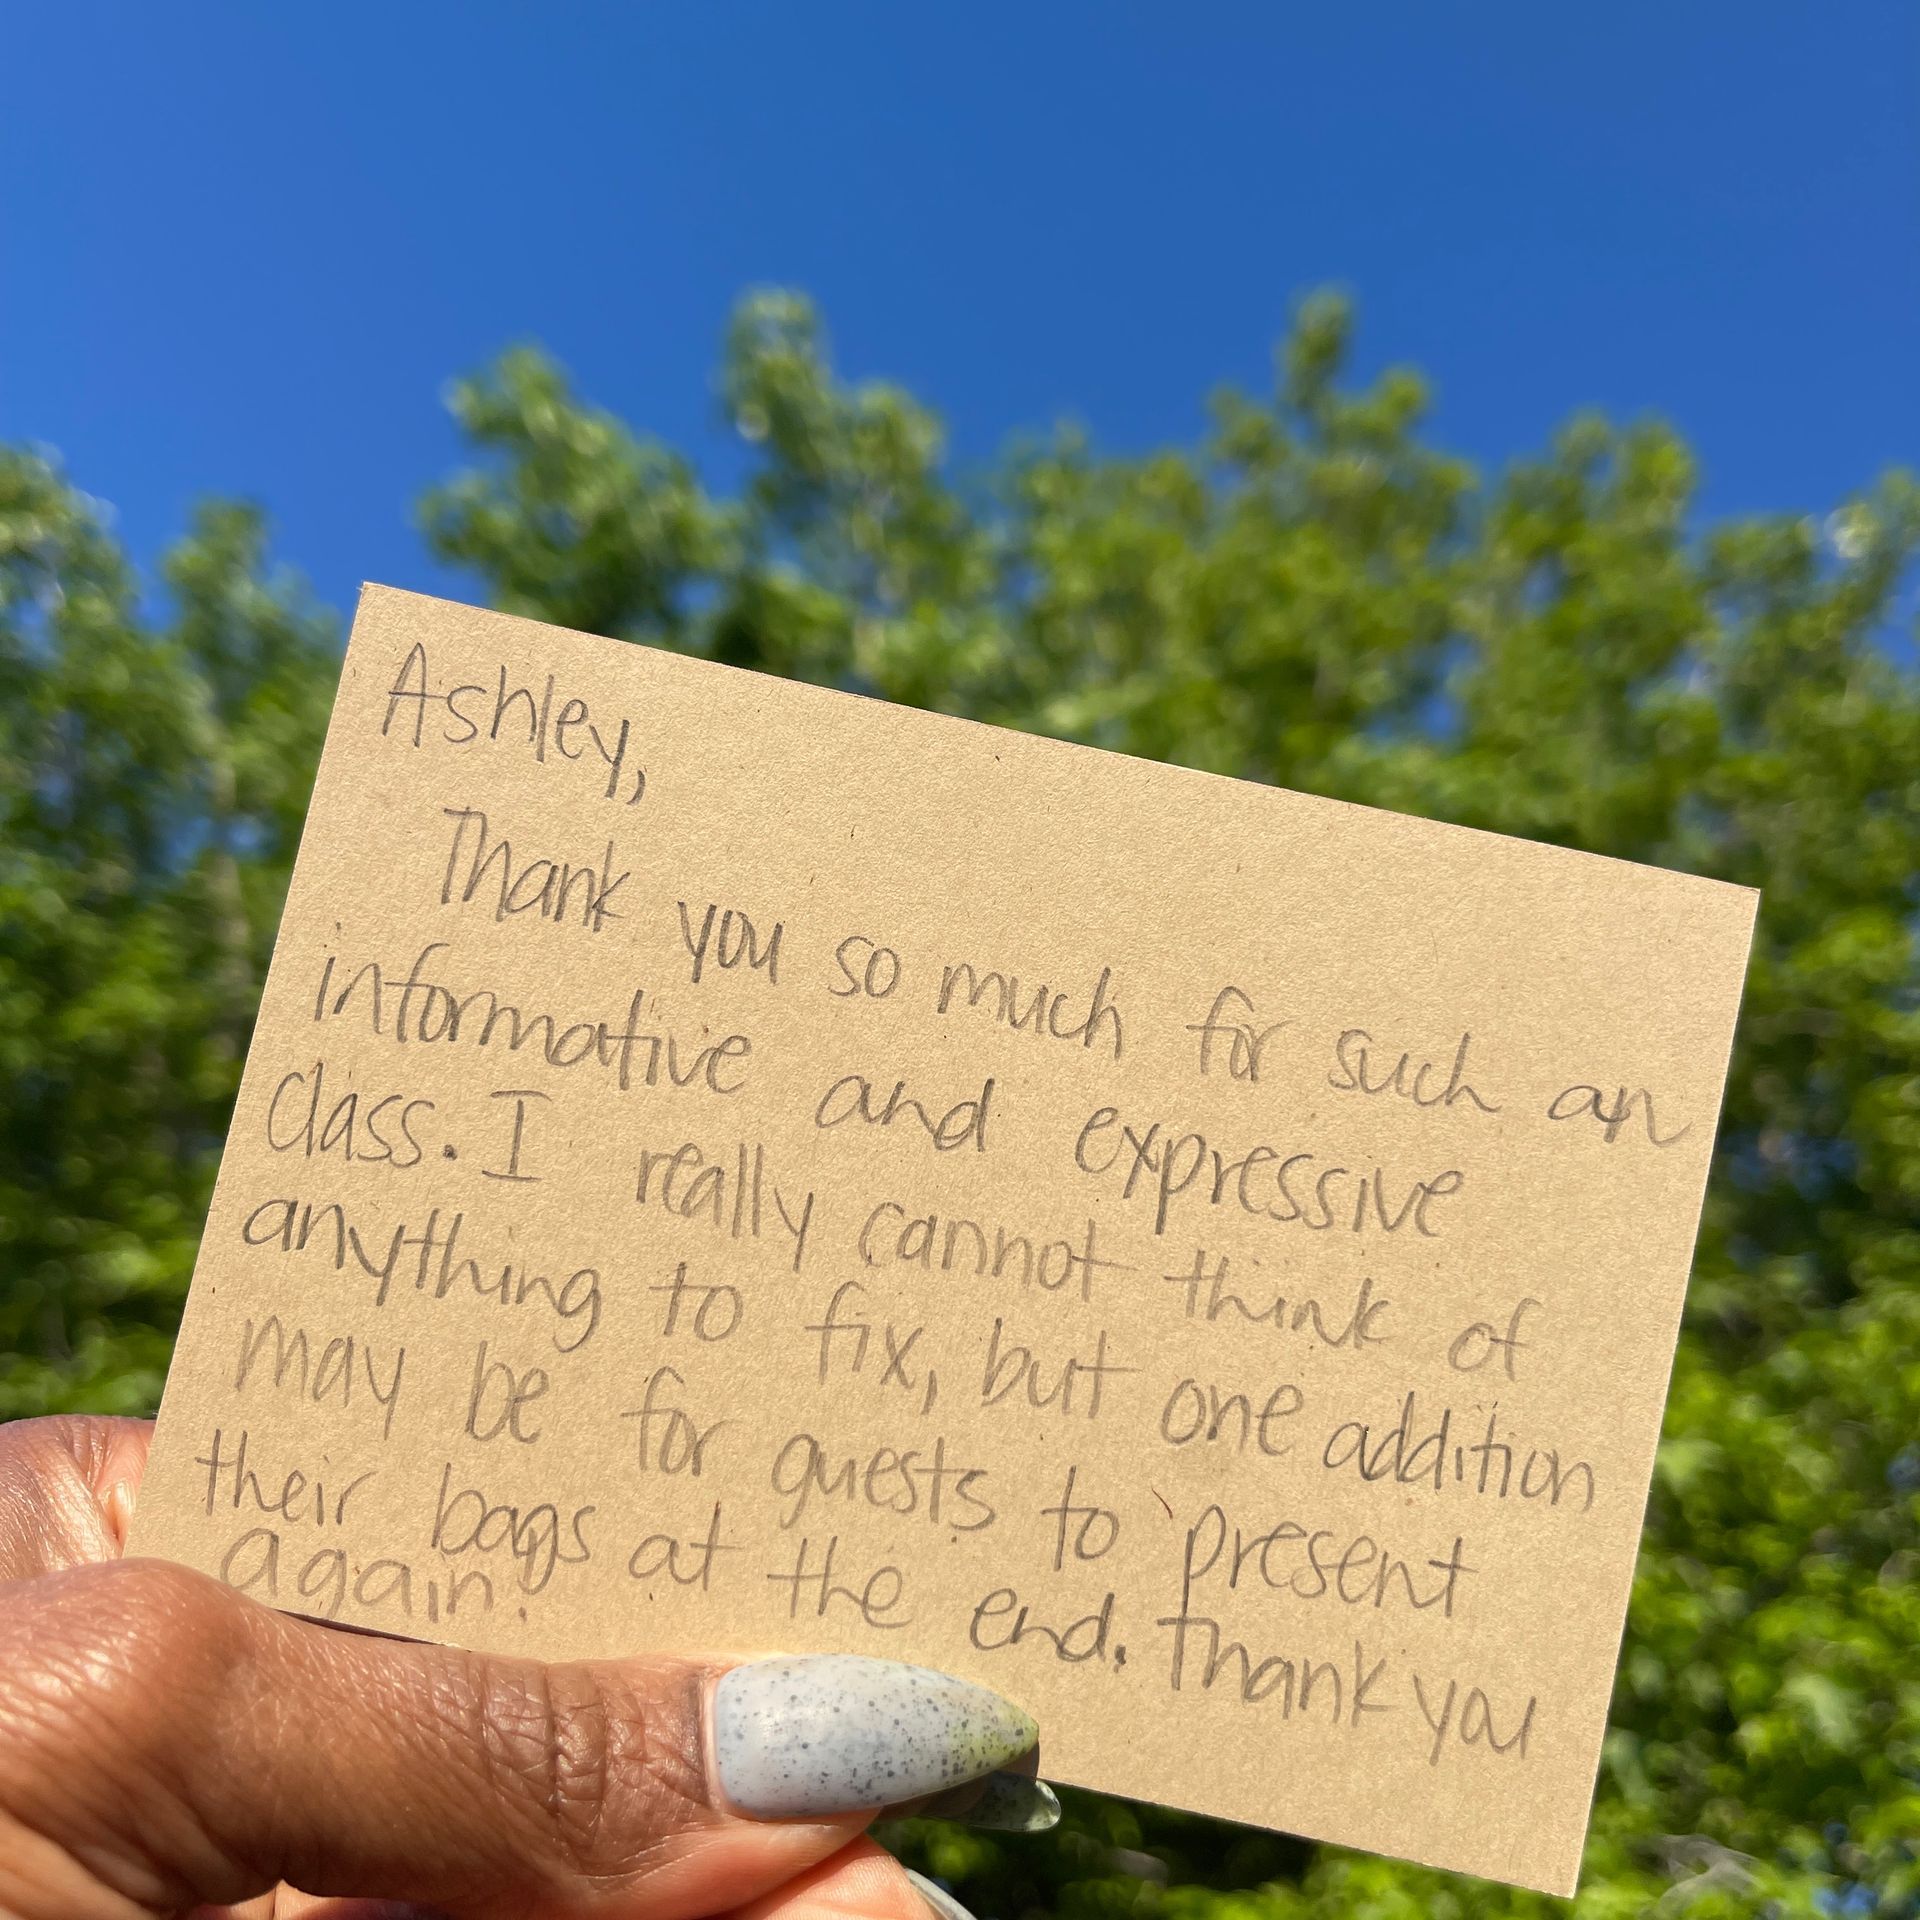 Ashley,
Thank you so much for such an
informative and expressive
class. I really cannot think of
anything to fix, but one addition
may be for guests to present
their bags at the end. Thank you
again!